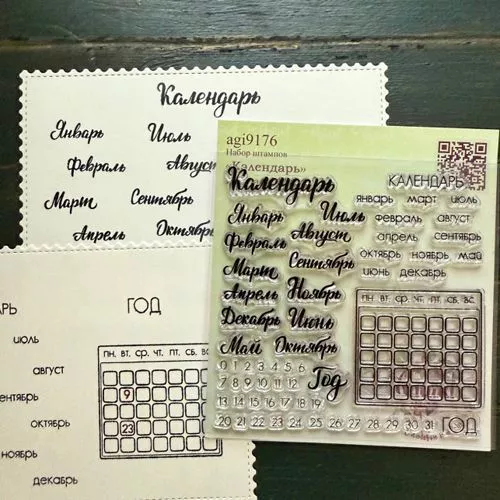 Календарь
Январь Июль
Февраль Август
Март Сентябрь
Апрель Октябрь
ГОД
июль
август
октябрь
ноябрь
декабрь
ПН. ВТ. СР. ЧТ. ПТ. СБ. ВС.
9
23
agi9176
Набор штампов
«Календарь»
Календарь
Январь Июль
Февраль Август
Март Сентябрь
Апрель Ноябрь
Декабрь Июнь
Май Октябрь
0 1 2 3 4 5 6
7 8 9 10 11 12
13 14 15 16 17 18 19
20 21 22 23 24 25 26 27 28 29 30 31
Год
КАЛЕНДАРЬ
январь март июль
февраль август
апрель сентябрь
октябрь ноябрь май
июнь декабрь
ПН. ВТ. СР. ЧТ. ПТ. СБ. ВС.
ГОД